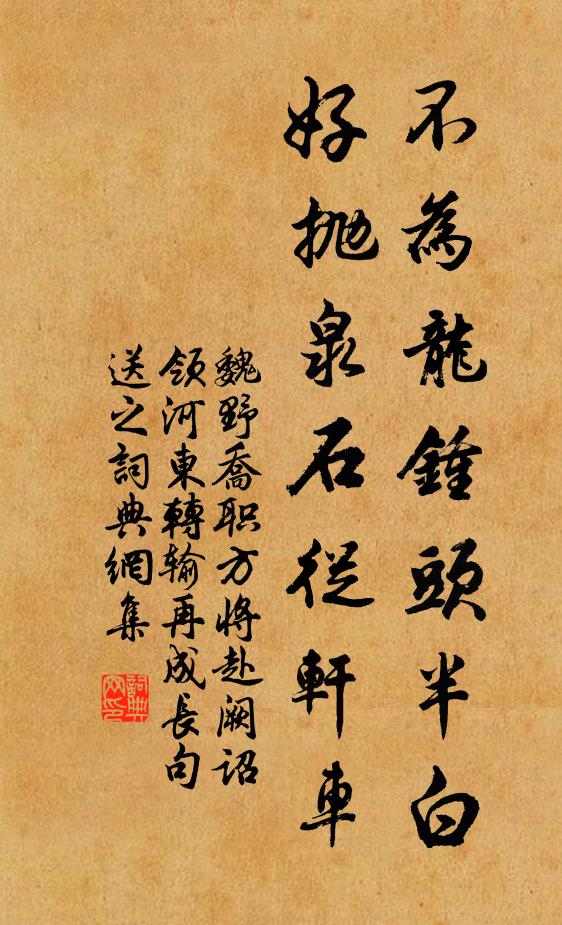 不為龍鍾頭半白
好抛泉石從軒車
魏野喬职方將赴阙诏
领河東轉输再成長句
送之詞典網集
詞典網印